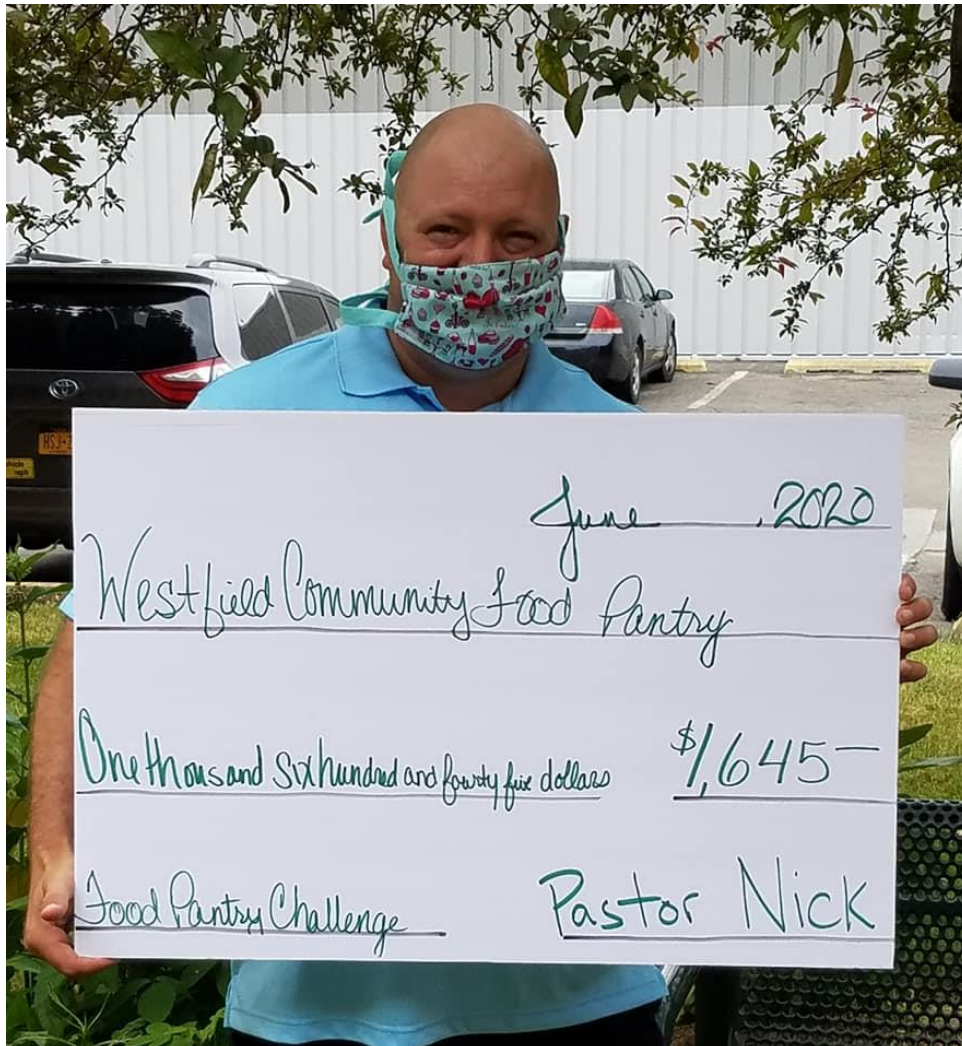 June , 2020
Westfield Community Food Pantry
One thousand six hundred and fourty five dollars $1,645—
Food Pantry Challenge Pastor Nick